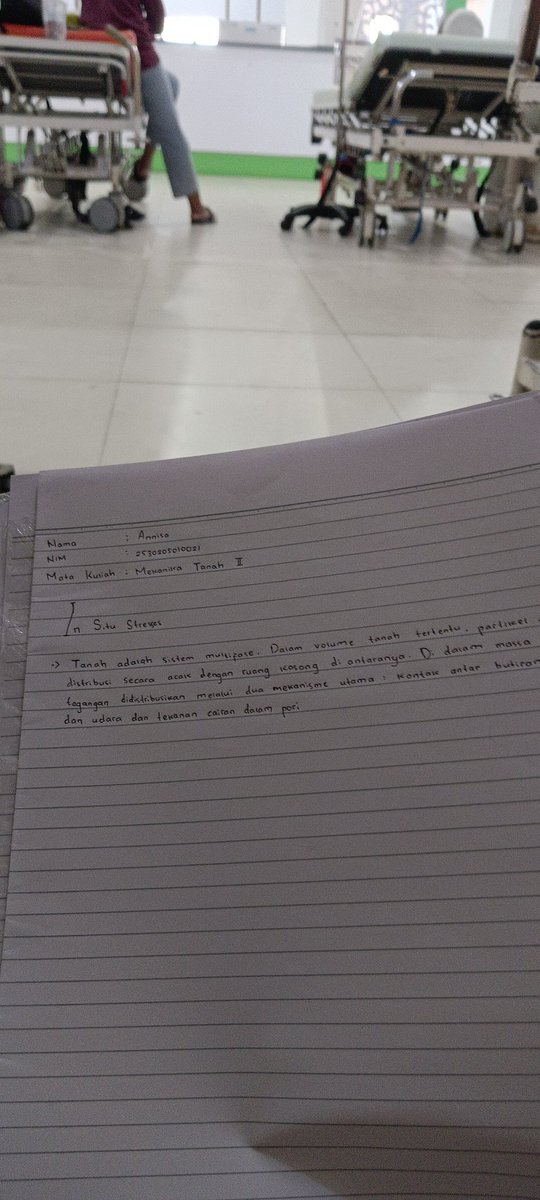 Nama : Annisa
NIM : 2530205010021
Mata Kuliah : Mekanika Tanah II
In Situ Stresses
-> Tanah adalah sistem multifase. Dalam volume tanah tertentu, partikel
distribusi secara acak dengan ruang kosong di antaranya. Di dalam massa
tegangan didistribusikan melalui dua mekanisme utama : kontak antar butiran
dan udara dan tekanan cairan dalam pori.